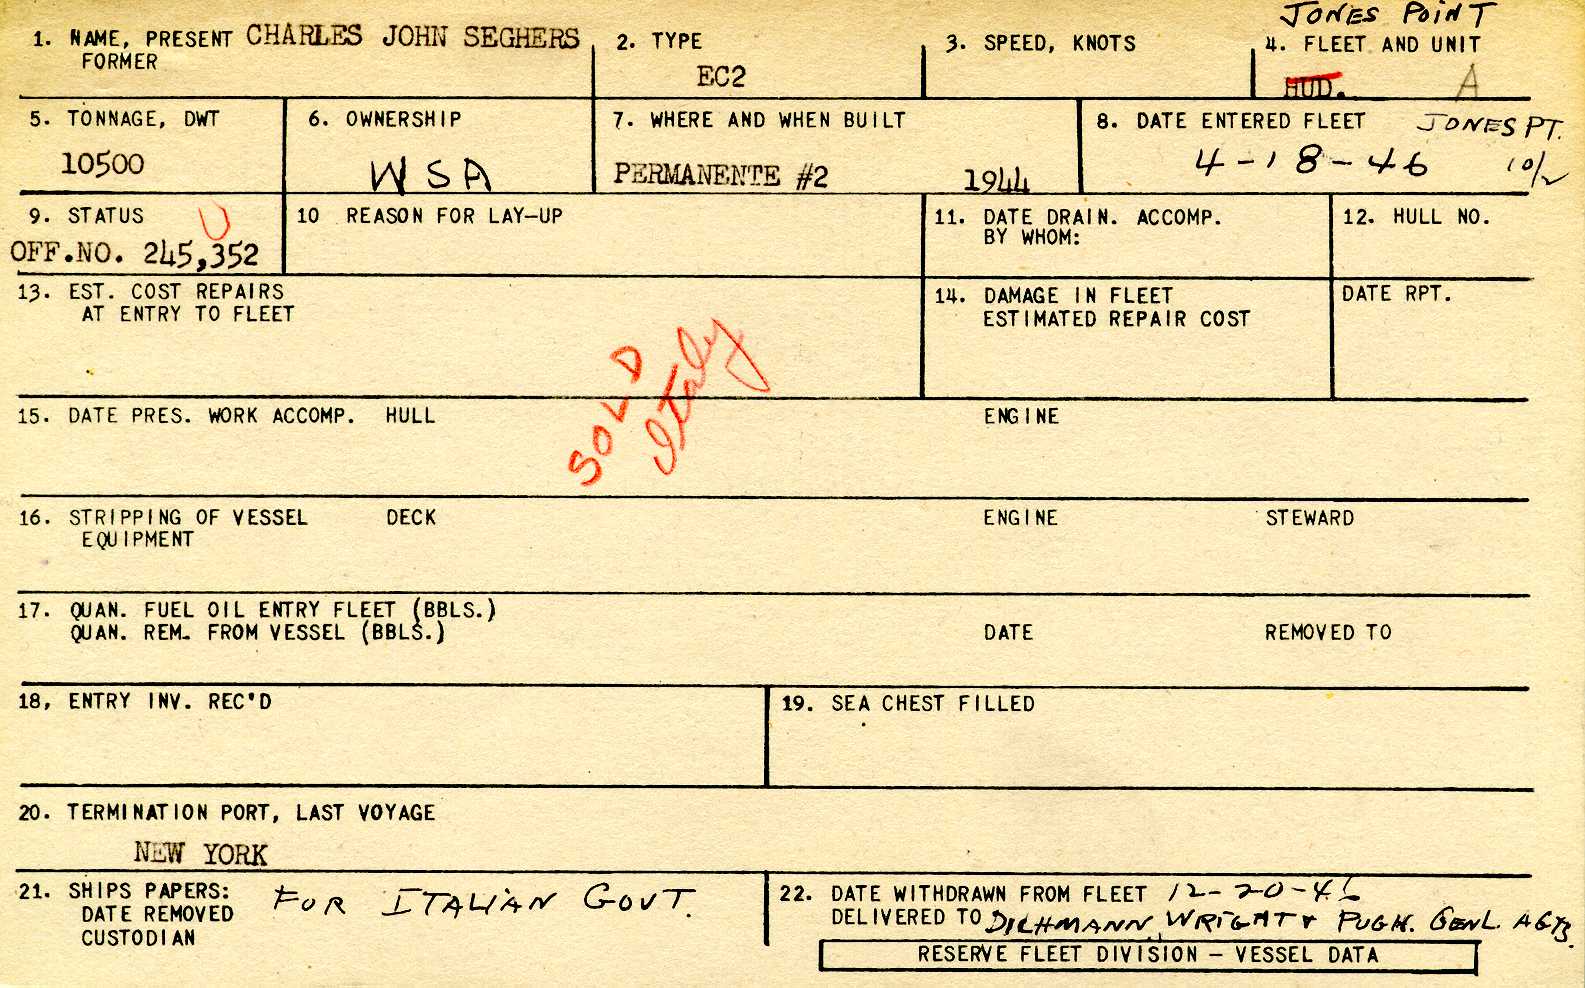 JONES POINT
1. NAME, PRESENT CHARLES JOHN SEGHERS
FORMER
2. TYPE
EC2
3. SPEED, KNOTS
4. FLEET AND UNIT
HUD. A
5. TONNAGE, DWT
10500
6. OWNERSHIP
WSA
7. WHERE AND WHEN BUILT
PERMANENTE #2 1944
8. DATE ENTERED FLEET JONES PT.
4-18-46 10/2
9. STATUS U
OFF.NO. 245,352
10 REASON FOR LAY-UP
11. DATE DRAIN. ACCOMP.
BY WHOM:
12. HULL NO.
13. EST. COST REPAIRS
AT ENTRY TO FLEET
14. DAMAGE IN FLEET
ESTIMATED REPAIR COST
DATE RPT.
SOLD
ITaly
15. DATE PRES. WORK ACCOMP. HULL ENGINE
16. STRIPPING OF VESSEL DECK ENGINE STEWARD
EQUIPMENT
17. QUAN. FUEL OIL ENTRY FLEET (BBLS.)
QUAN. REM. FROM VESSEL (BBLS.) DATE REMOVED TO
18, ENTRY INV. REC'D
19. SEA CHEST FILLED
20. TERMINATION PORT, LAST VOYAGE
NEW YORK
21. SHIPS PAPERS: FOR ITALIAN GOVT.
DATE REMOVED
CUSTODIAN
22. DATE WITHDRAWN FROM FLEET 12-20-46
DELIVERED TO DICHMANN, WRIGHT & PUGH. GENL. AGTS.
RESERVE FLEET DIVISION - VESSEL DATA